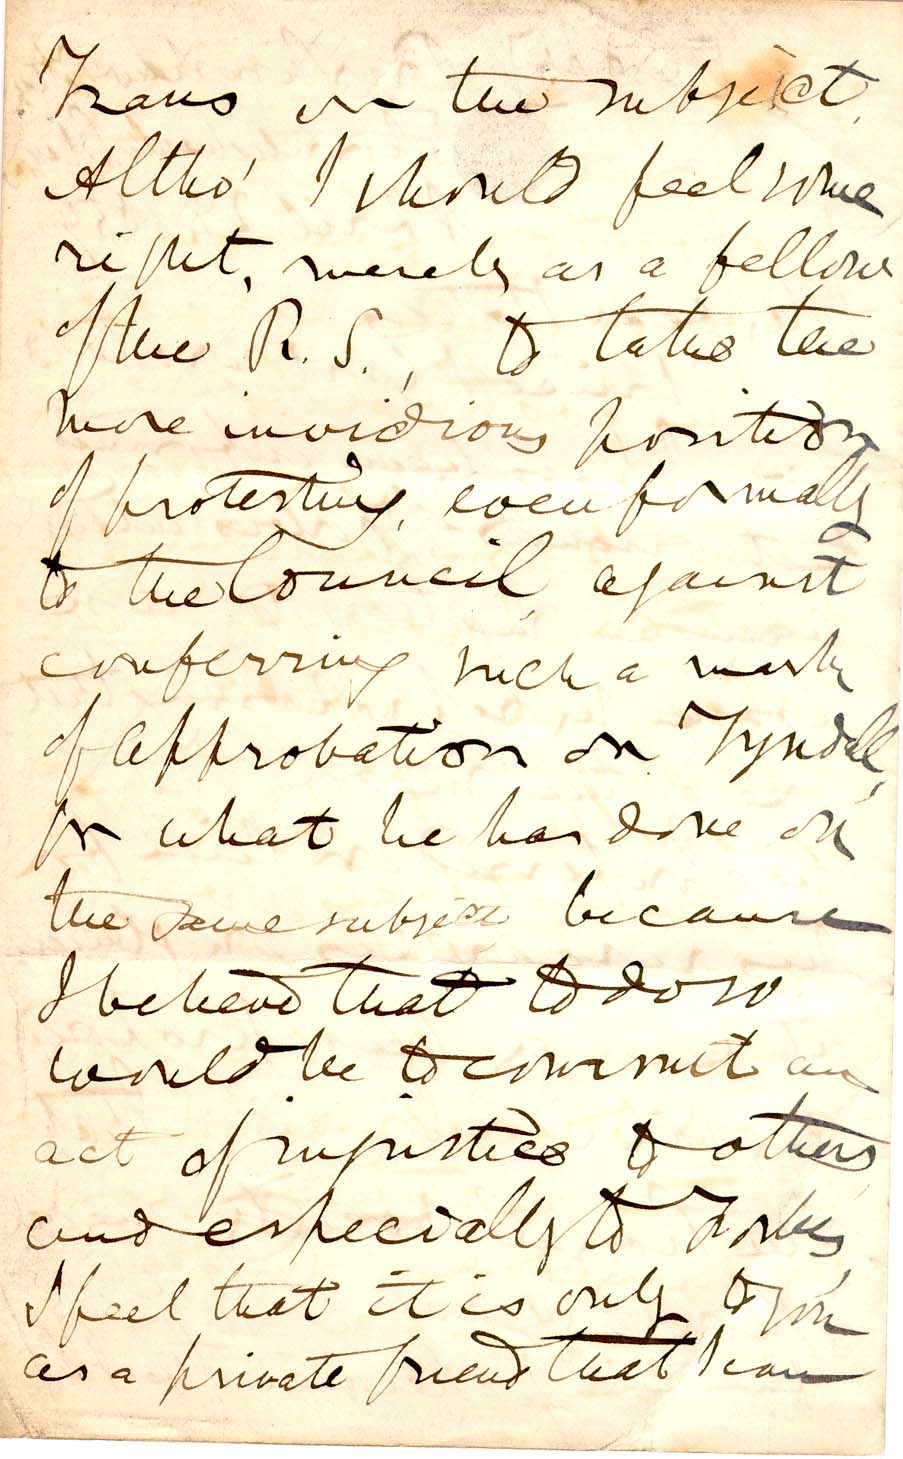 Trans on the subject.
Altho' I should feel some
right, merely as a fellow
of the R.S., to take the
more invidious position
of protesting, even formally
to the Council, against
conferring such a mark
of approbation on Tyndall,
for what he has done on
the same subject because
I believe that to do so
would be to commit an
act of injustice to others
and especially to Forbes,
I feel that it is only to you
as a private friend that I can